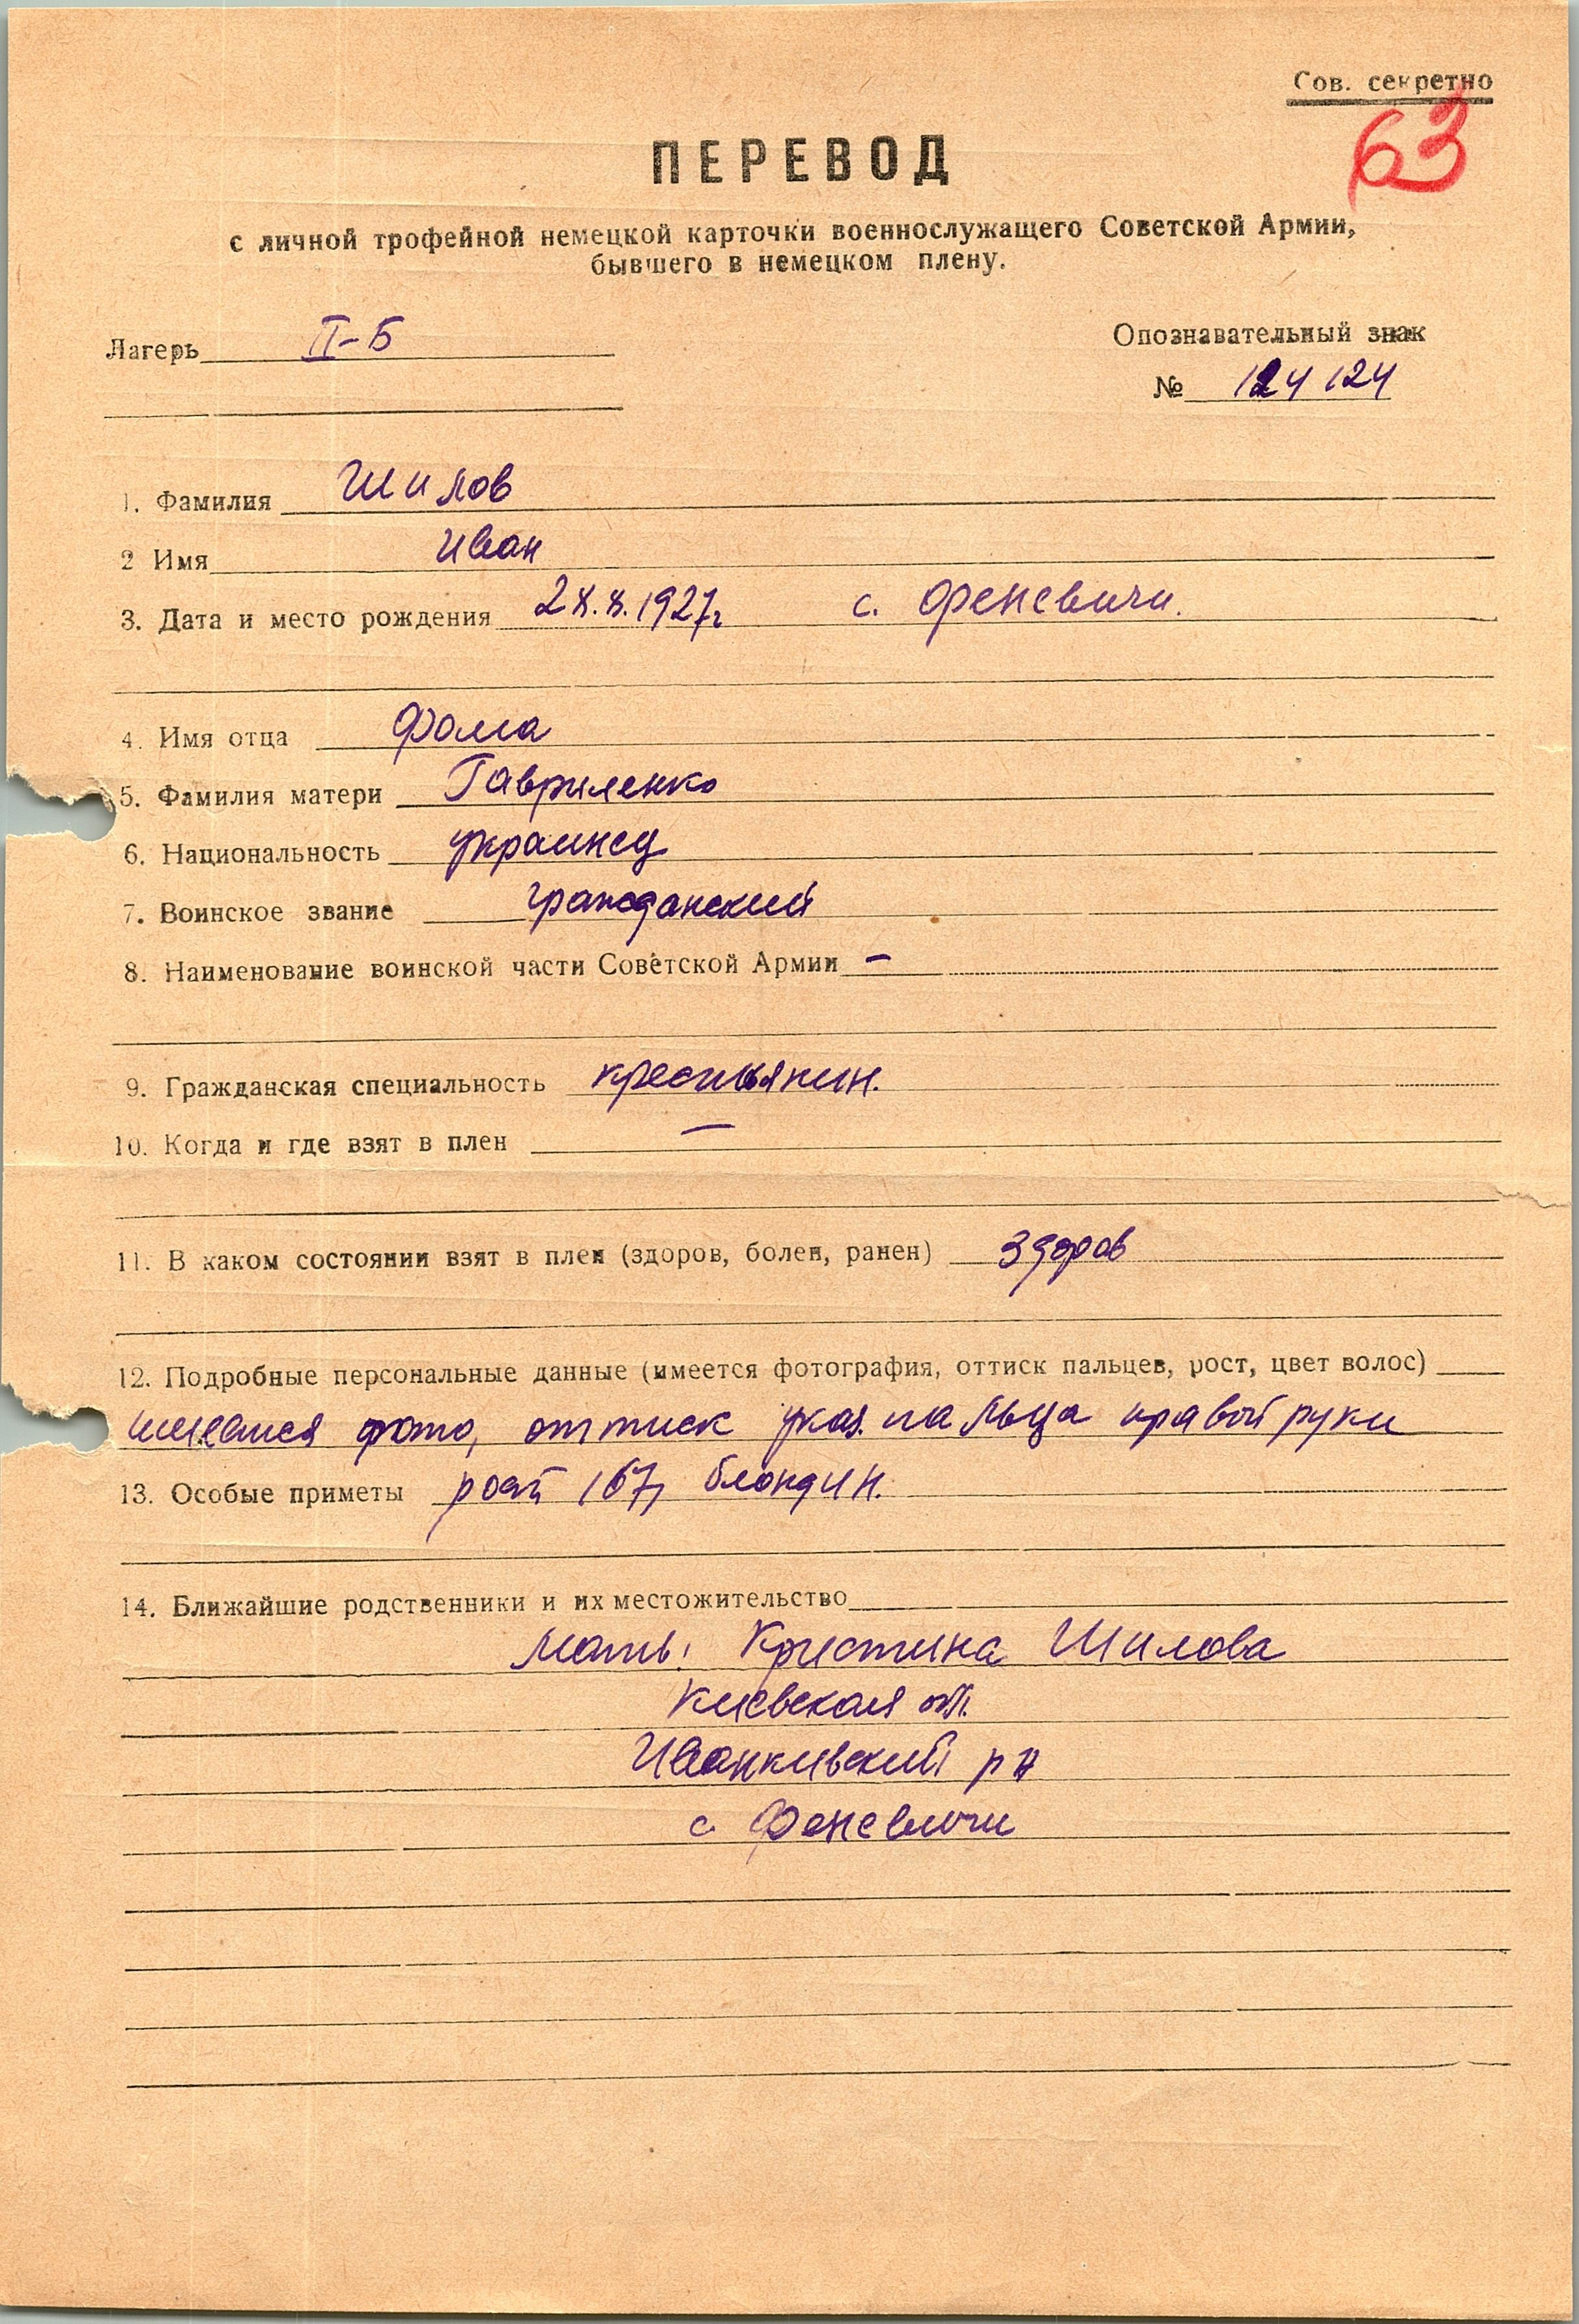 Сов. секретно
63
ПЕРЕВОД
с личной трофейной немецкой карточки военнослужащего Советской Армии,
бывшего в немецком плену.
Лагерь II-Б
Опознавательный знак
№ 124124
1. Фамилия Шилов
2 Имя Иван
3. Дата и место рождения 28.8.1927г с. Феневичи.
4. Имя отца Фома
5. Фамилия матери Гавриленко
6. Национальность украинец
7. Воинское звание гражданский
8. Наименование воинской части Советской Армии –
9. Гражданская специальность крестьянин.
10. Когда и где взят в плен —
11. В каком состоянии взят в плен (здоров, болен, ранен) здоров
12. Подробные персональные данные (имеется фотография, оттиск пальцев, рост, цвет волос)
имеется фото, оттиск указ. пальца правой руки
13. Особые приметы рост 167, блондин.
14. Ближайшие родственники и их местожительство
мать: Кристина Шилова
Киевская обл.
Иванкивский р н
с. Феневичи